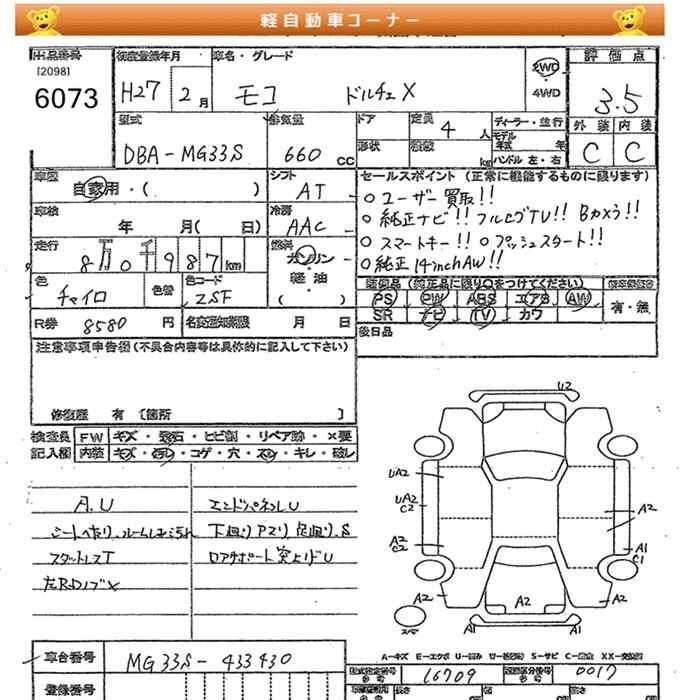 軽自動車コーナー
出品番号 初度登録年月 車名・グレード 評価点
[2098]
6073
H27 2月 モコ ドルチェX 2WD
・4WD
3.5
型式 排気量 ドア 定員 ディーラー・並行 外装 内装
DBA-MG33S 660cc 形状 4人 モデル年式 年 C C
積載 kg ハンドル 左・右
車歴 シフト セールスポイント(正常に機能するものに限ります)
自家用・( ) AT
○ユーザー買取!!
車検 冷房
年 月( 日) AAC
○純正ナビ!! フルセグTV!! Bカメラ!!
○スマートキー!! ○プッシュスタート!!
走行 燃料
8万0千987km ガソリン
軽・油
( )
○純正14inchAW!!
色 色替 色コード
チャイロ ZSF
装備品(純正品に限り○をつけてください)
PS PW ABS エアB AW 有・無
SR ナビ TV カワ
R券 8580円 名変通知期限 月 日
後日品
注意事項申告欄(不具合内容等は具体的に記入して下さい)
修復歴 有〔箇所 〕
検査員 FW キズ・飛石・ヒビ割・リペア跡・×要
記入欄 内装 キズ・汚レ・コゲ・穴・スレ・キレ・破レ
A.U エンドパネルU
シートヘタリ、ルームしみ汚れ 下廻りPスリ 足廻り.S
スタットレスT ロアサポート突上げU
左RDノブ×
U2
UA2
UA2
C2
A2
A2
C2
A1
C1
A2 A2 A2
スペア A1 A1
A-キズ E-エクボ U-凹み W-板金跡 S-サビ C-腐食 XX-交換済
車台番号 MG33S-433430
型式指定番号 16709 類別区分番号 0017
登録番号
長さ 幅 高さ